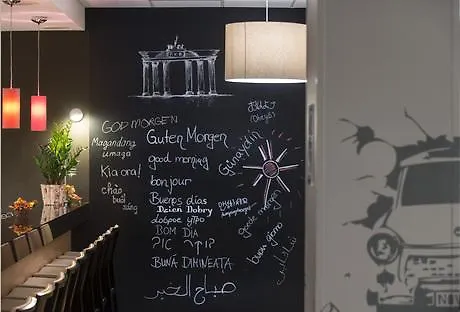 GOD MORGEN
Magandang
umaga
Kia ora!
chào
buổi
sáng
Guten Morgen
good morning
bonjour
Buenos días
Dzień Dobry
доброе утро
BOM DIA
בוקר טוב
BUNĂ DIMINEAȚA
صباح الخير
(Dhivehi)
Günaydın
goede morgen
buon giorno